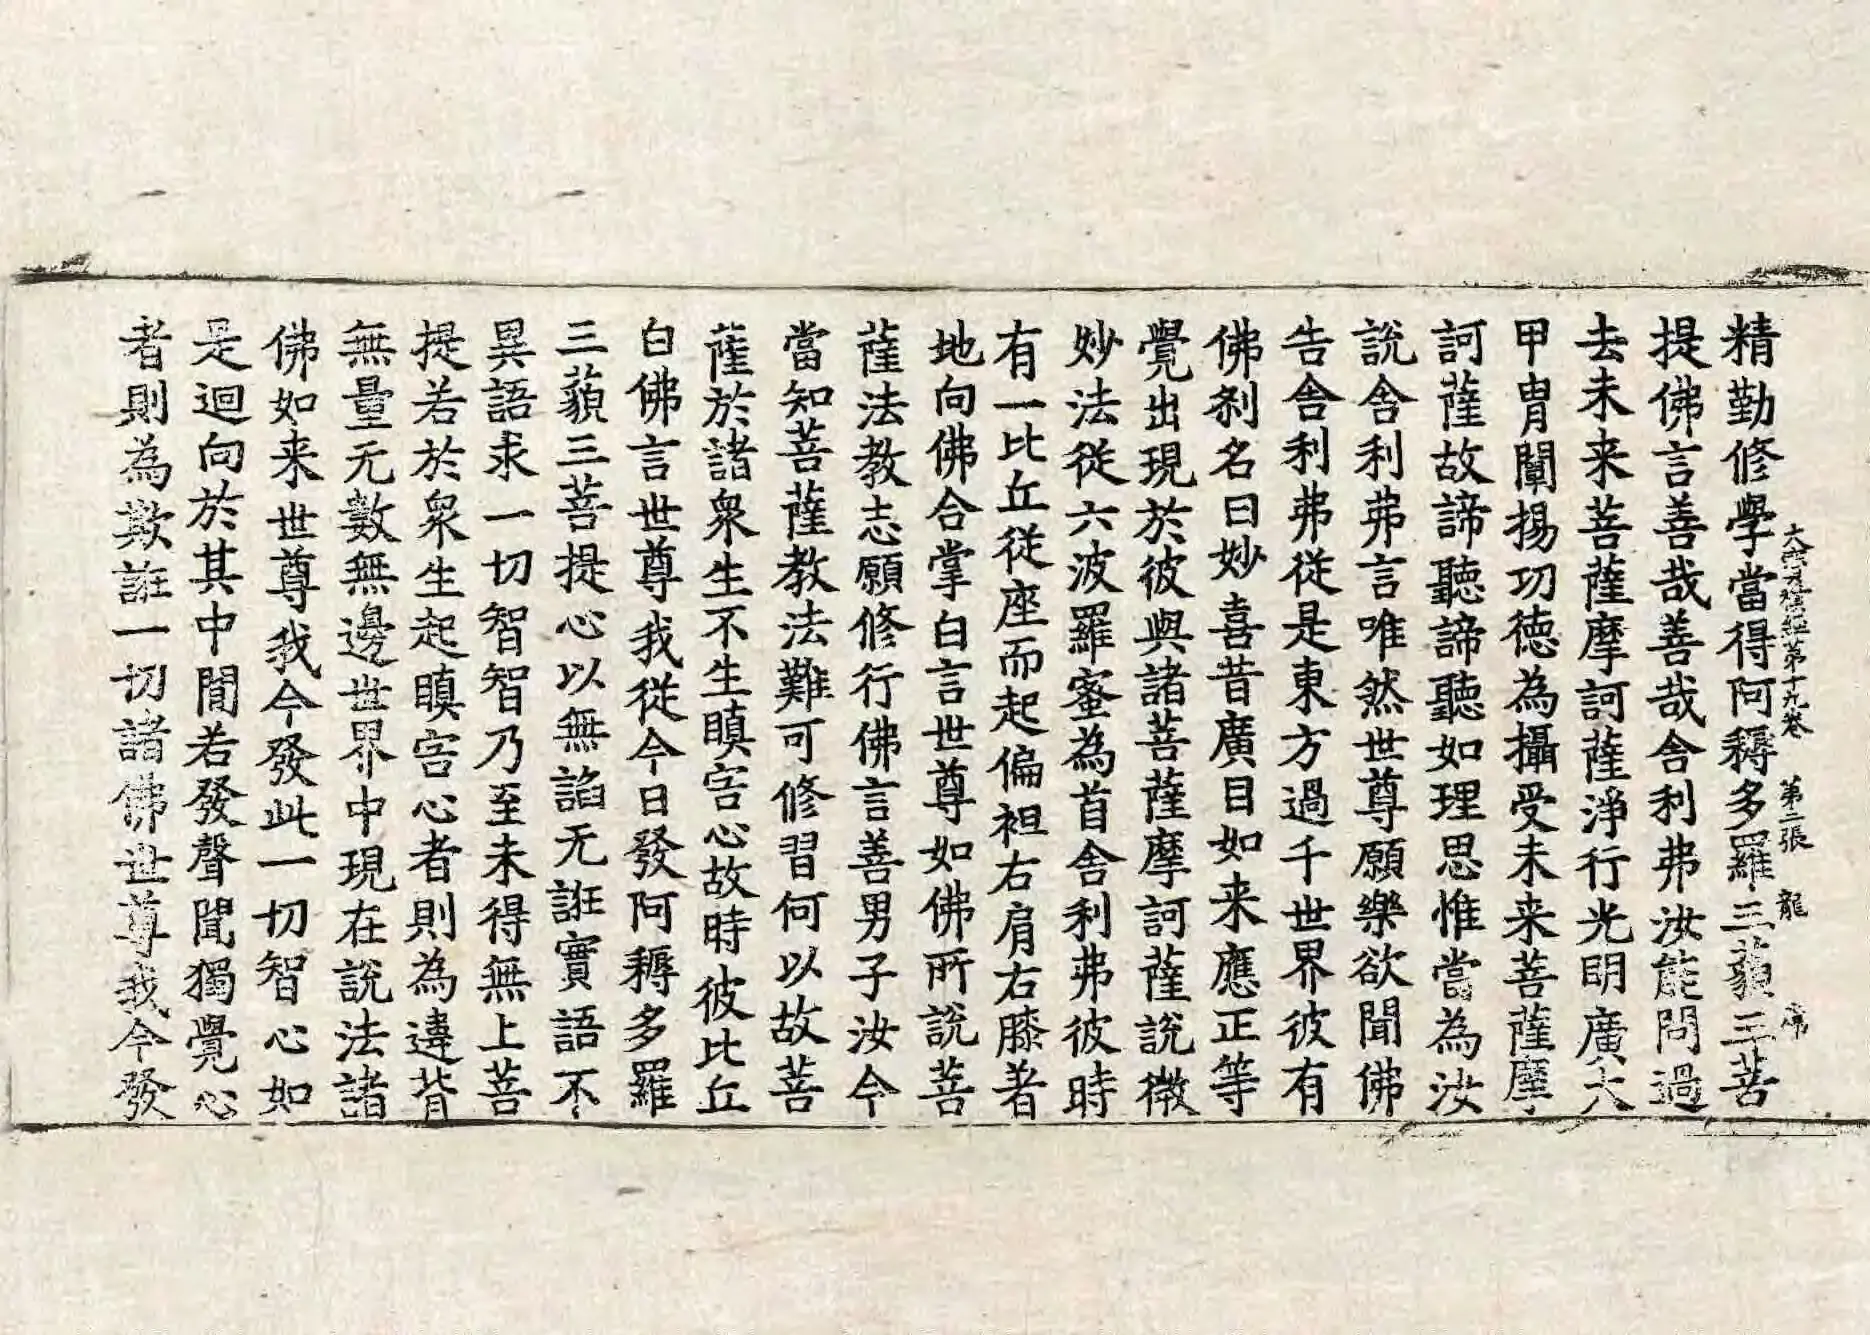 大寶積經第十九卷　第二張　龍　席
精勤修學當得阿耨多羅三藐三菩
提佛言善哉善哉舍利弗汝能問過
去未来菩薩摩訶薩淨行光明廣大
甲冑闡揚㓛德為攝受未来菩薩摩
訶薩故諦聽諦聽如理思惟當為汝
說舍利弗言唯然世尊願樂欲聞佛
告舍利弗從是東方過千世界彼有
佛刹名曰妙喜昔廣目如来應正等
覺出現於彼與諸菩薩摩訶薩說微
妙法從六波羅蜜為首舍利弗彼時
有一比丘從座而起偏袒右肩右膝著
地向佛合掌白言世尊如佛所說菩
薩法教志願修行佛言善男子汝今
當知菩薩教法難可修習何以故菩
薩於諸衆生不生瞋害心故時彼比丘
白佛言世尊我從今日發阿耨多羅
三藐三菩提心以無諂无誑實語不
異語求一切智智乃至未得無上菩
提若於衆生起瞋害心者則為違背
無量无數無邊世界中現在說法諸
佛如来世尊我今發此一切智心如
是迴向於其中閒若發聲聞獨覺心
者則為欺誑一切諸佛世尊我今發